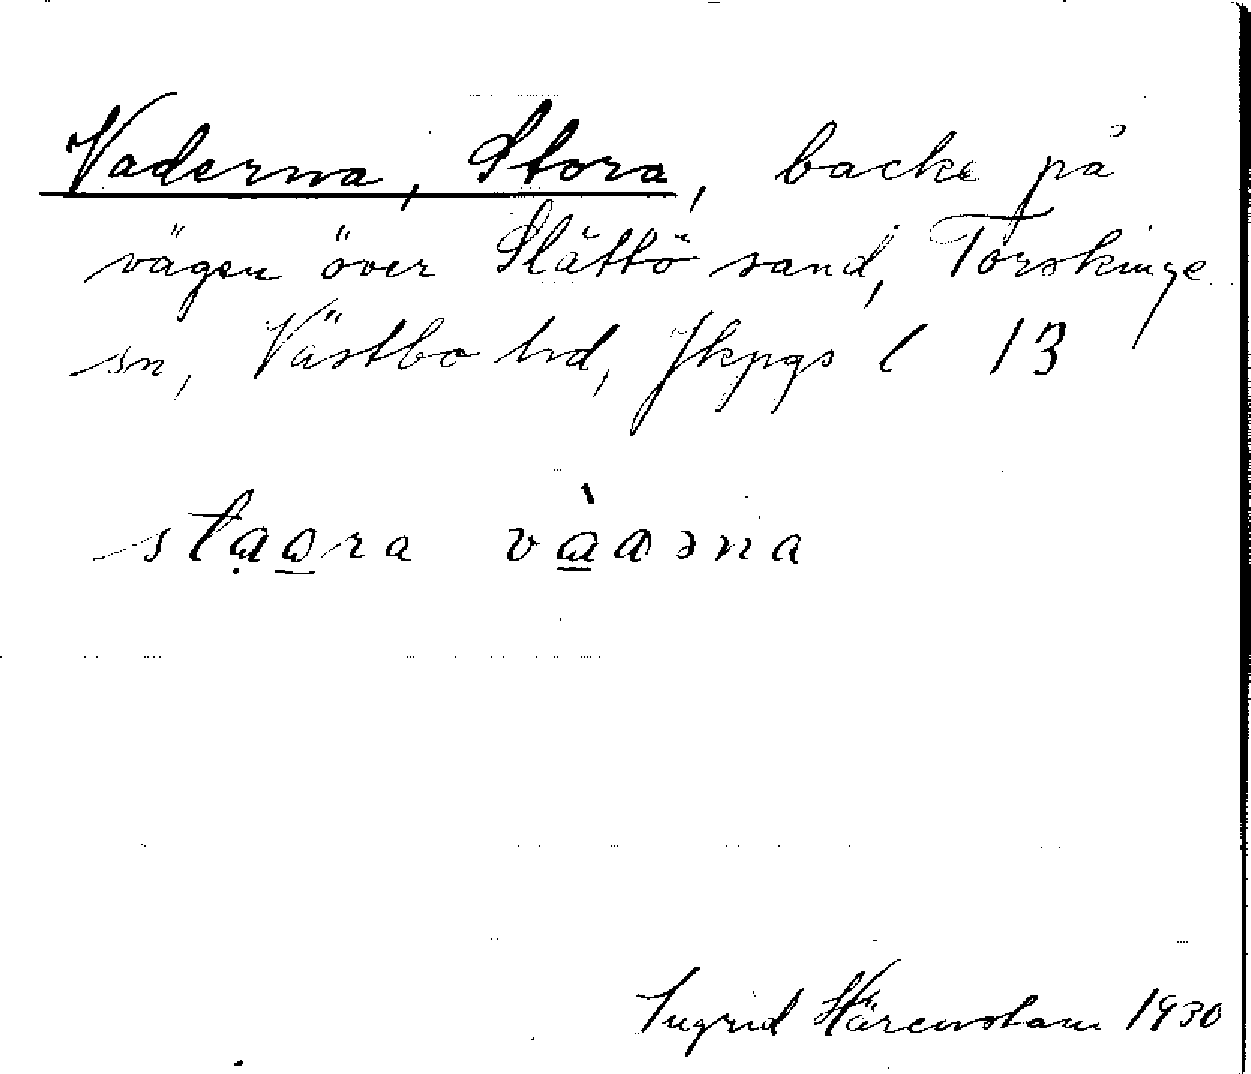 Vaderna, Stora, backe på
vägen över Slättö sand, Torskinge
sn, Västbo hd, Jkpgs l 13
stạo̲ra và̲aəna
Ingrid Härenstam 1930